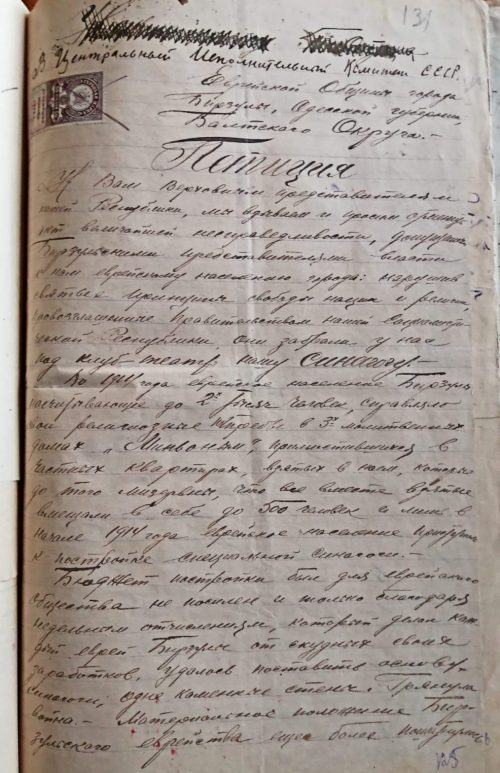 131
В Центральный Исполнительный Комитет СССР.
Еврейской Общины города
Бирзулы, Одесской губернии,
Балтского Округа.-
Петиция
К Вам Верховным представителям
нашей Республики, мы взываем и просим
от величайшей несправедливости,
Бирзульскими представителями власти
к нам еврейскому населению города: нарушив
святые принципы свободы нации и религии,
провозглашенные Правительством нашей
Республики, они забрали у нас
под клуб-театр нашу Синагогу.-
До 1914 года еврейское население Бирзулы
насчитывающее до 2х тысяч человек, справляло
свои религиозные в 3х молитвенных
домах "Миньоны", в
частных квартирах, взятых в наем, которые
до того мизерны, что все вместе взятые
вмещали в себе до 500 человек и лишь в
начале 1914 года еврейское население приступило
к постройке специальной синагоги.-
Бюджет постройки был для еврейского
общества не посилен и только благодаря
недельным отчислениям, которые делал каж-
дый еврей Бирзулы от скудных своих
заработков, удалось поставить основу
Синагоги, одне каменные стены. Грянула
война.- Материальное положение Бир-
зульского еврейства еще более
125